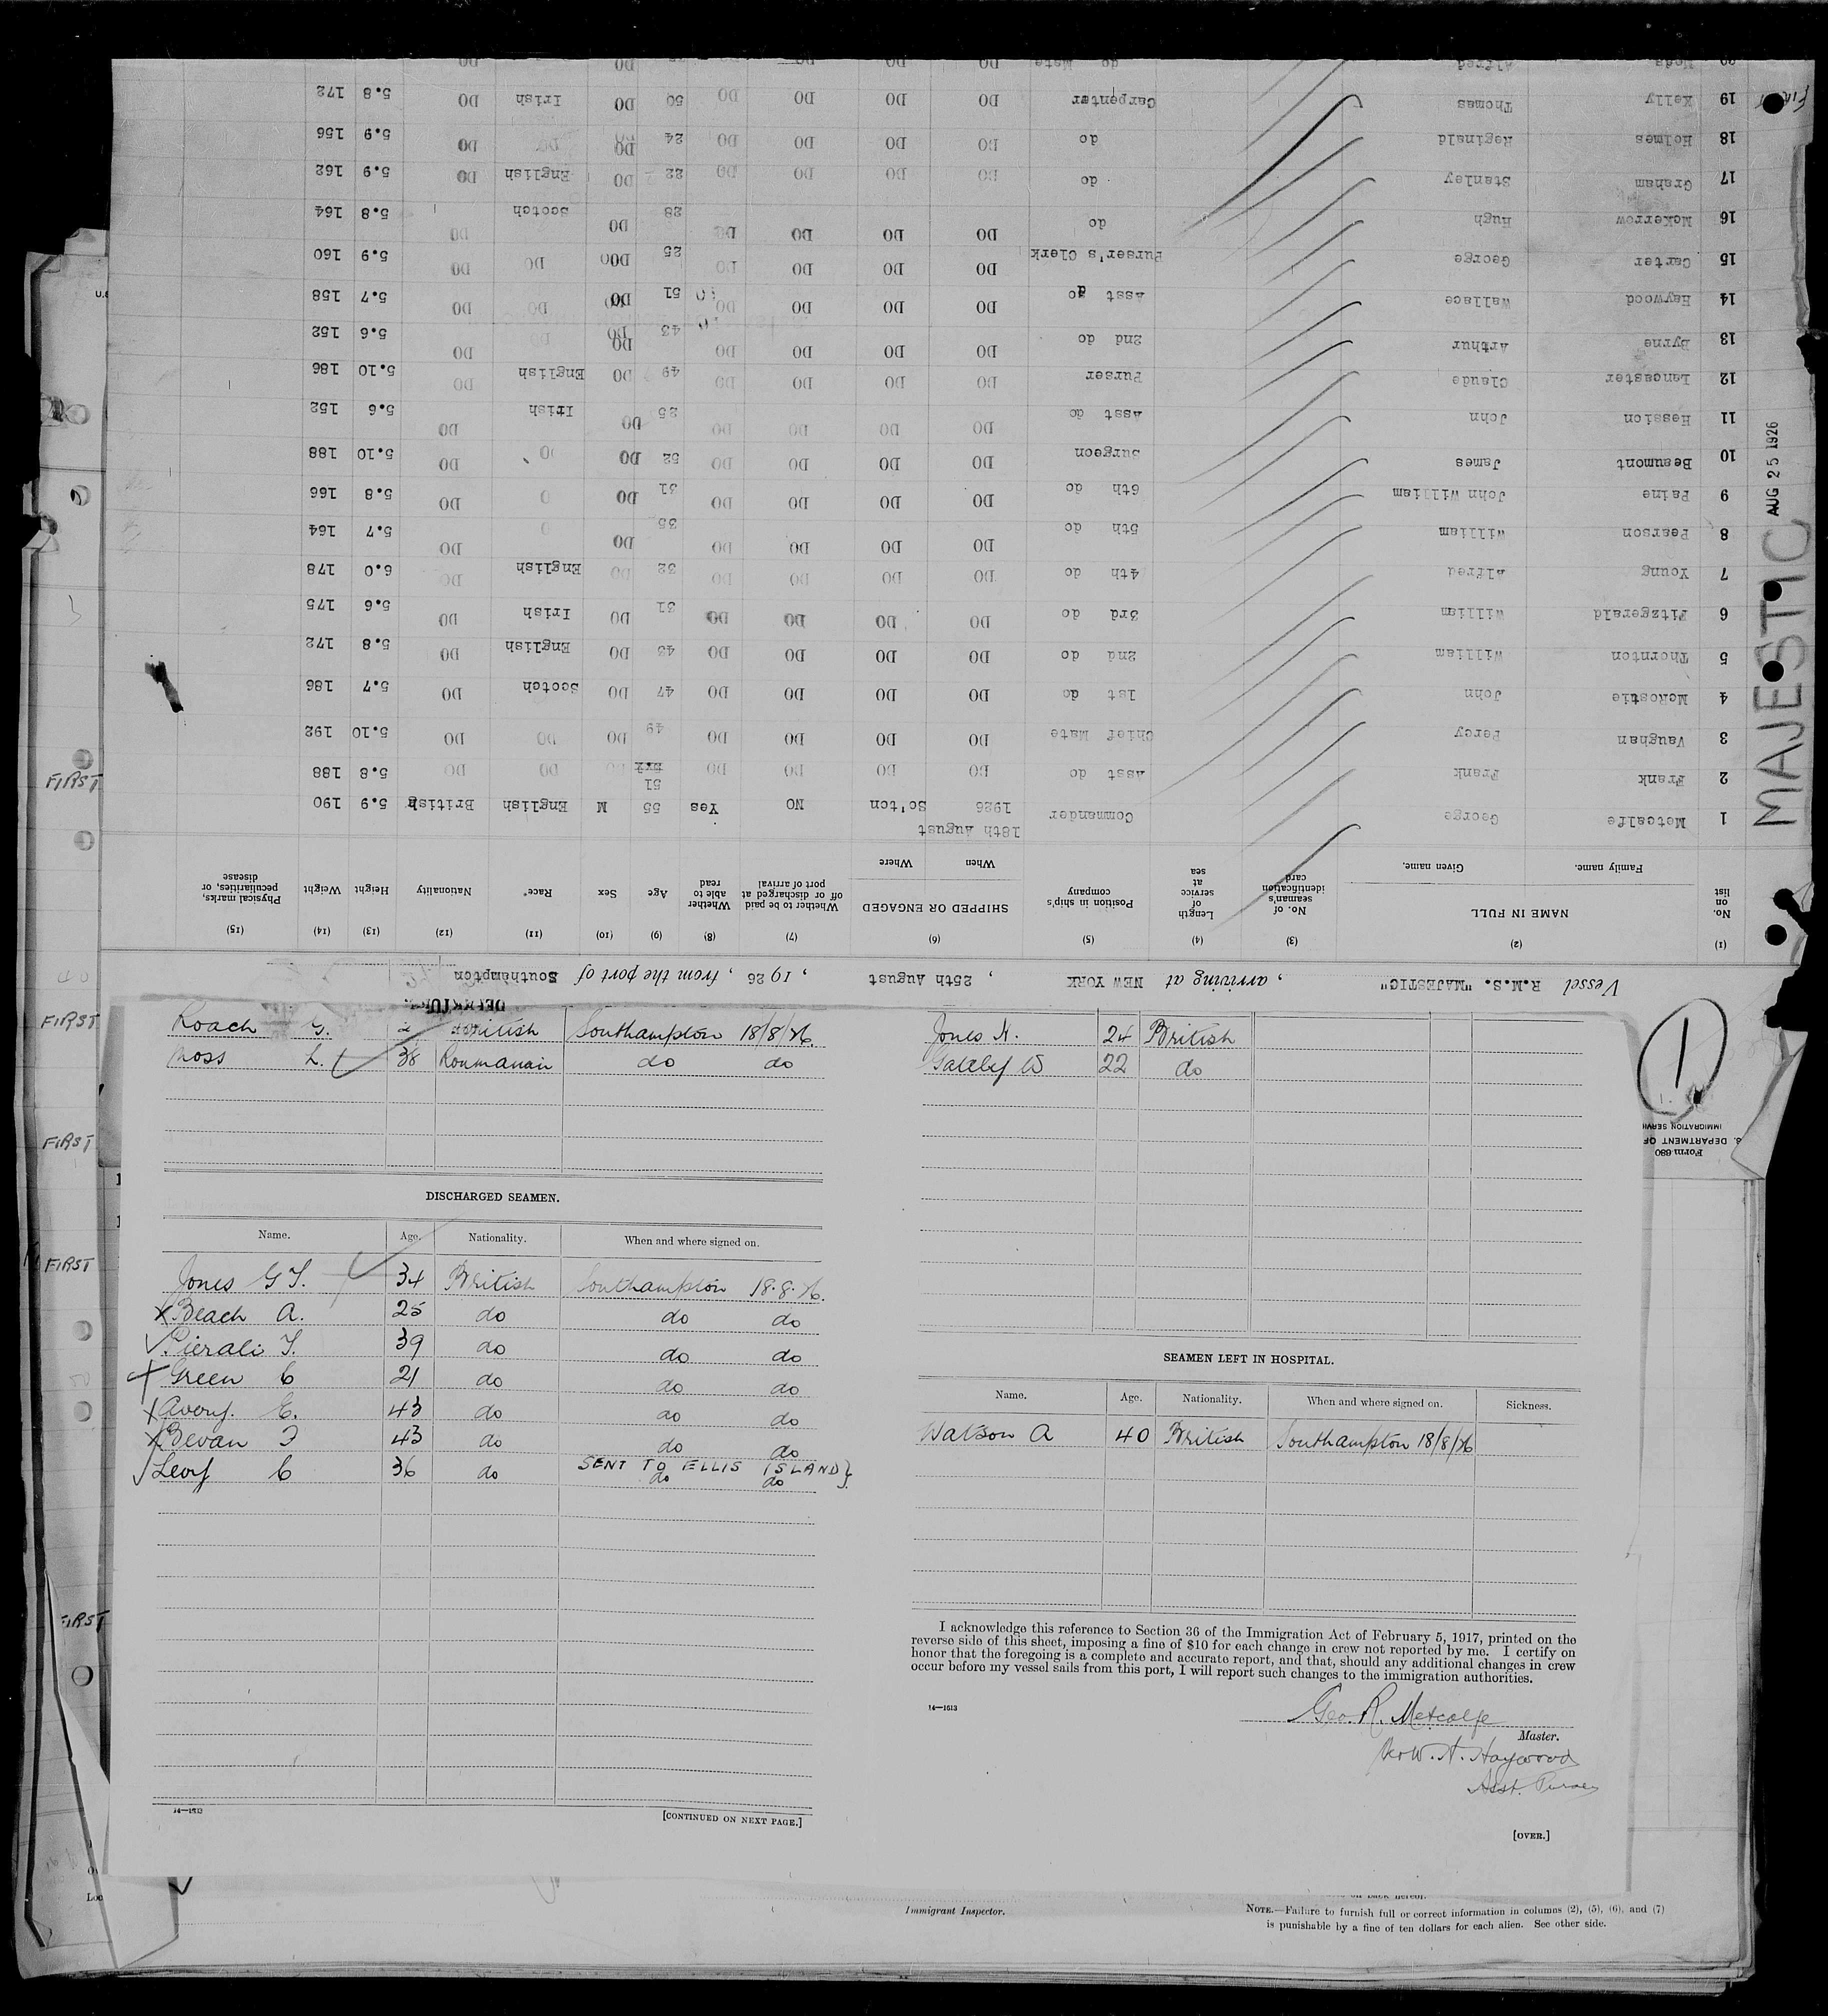 FIRST
FIRST
FIRST
FIRST
FIRST
MAJESTIC AUG 25 1926
1
Form 680
DEPARTMENT OF
IMMIGRATION SERVI
Vessel R.M.S. "MAJESTIC", arriving at NEW YORK, 25th August, 1926, from the port of Southampton
(1) (2) (3) (4) (5) (6) (7) (8) (9) (10) (11) (12) (13) (14) (15)
No. on list NAME IN FULL Family name. Given name. No. of seaman's identification card Length of service at sea Position in ship's company SHIPPED OR ENGAGED When Where Whether to be paid off or discharged at port of arrival Whether able to read Age Sex Race* Nationality Height Weight Physical marks, peculiarities, or disease
18th August
1 Metcalfe George Commander 1926 So'ton NO Yes 55 M English British 5.9 190
51
2 Frank Frank Asst do DO DO DO DO DO DO DO 5.8 188
3 Vaughan Percy Chief Mate DO DO DO DO 49 DO DO DO 5.10 192
4 McRostie John 1st do DO DO DO DO 47 DO Scotch DO 5.7 186
5 Thornton William 2nd do DO DO DO DO 43 DO English DO 5.8 172
6 Fitzgerald William 3rd do DO DO DO DO 31 DO Irish DO 5.6 175
7 Young Alfred 4th do DO DO DO DO 32 DO English DO 6.0 178
8 Pearson William 5th do DO DO DO DO 35 DO DO 5.7 164
9 Paine John William 6th do DO DO DO DO 31 DO DO 5.8 166
10 Beaumont James Surgeon DO DO DO DO 52 DO DO DO 5.10 188
11 Hession John Asst do DO DO DO DO 25 DO Irish DO 5.6 152
12 Lancaster Claude Purser DO DO DO DO 49 DO English DO 5.10 186
13 Byrne Arthur 2nd do DO DO DO DO 43 DO DO DO 5.6 152
14 Haywood Wallace Asst do DO DO DO DO 51 DO DO DO 5.7 158
15 Carter George Purser's Clerk DO DO DO DO 25 DO DO DO 5.9 160
16 McKerrow Hugh do DO DO DO DO 28 DO Scotch DO 5.8 164
17 Graham Stanley do DO DO DO DO 22 DO English DO 5.9 162
18 Holmes Reginald do DO DO DO DO 24 DO DO DO 5.9 156
19 Kelly Thomas Carpenter DO DO DO DO 50 DO Irish DO 5.8 172
20 Alfred do Mate DO DO DO DO DO DO
Roach G. British Southampton 18/8/26.
Moss L. 38 Roumanian do do
DISCHARGED SEAMEN.
Name. Age. Nationality. When and where signed on.
Jones G T. 34 British Southampton 18.8.26.
Beach A. 25 do do do
Pierali T. 39 do do do
Green C 21 do do do
Avery. E. 43 do do do
Bevan F 43 do do do
SENT TO ELLIS ISLAND
Levy C 36 do do do
14—1613
[CONTINUED ON NEXT PAGE.]
Jones H. 24 British
Gateley W 22 do
SEAMEN LEFT IN HOSPITAL.
Name. Age. Nationality. When and where signed on. Sickness.
Watson A 40 British Southampton 18/8/26
I acknowledge this reference to Section 36 of the Immigration Act of February 5, 1917, printed on the
reverse side of this sheet, imposing a fine of $10 for each change in crew not reported by me. I certify on
honor that the foregoing is a complete and accurate report, and that, should any additional changes in crew
occur before my vessel sails from this port, I will report such changes to the immigration authorities.
14—1613
Geo. R. Metcalfe
Master.
Per W. A. Haywood
Asst. Purser
[OVER.]
Immigrant Inspector.
on back hereof.
NOTE.—Failure to furnish full or correct information in columns (2), (5), (6), and (7)
is punishable by a fine of ten dollars for each alien. See other side.